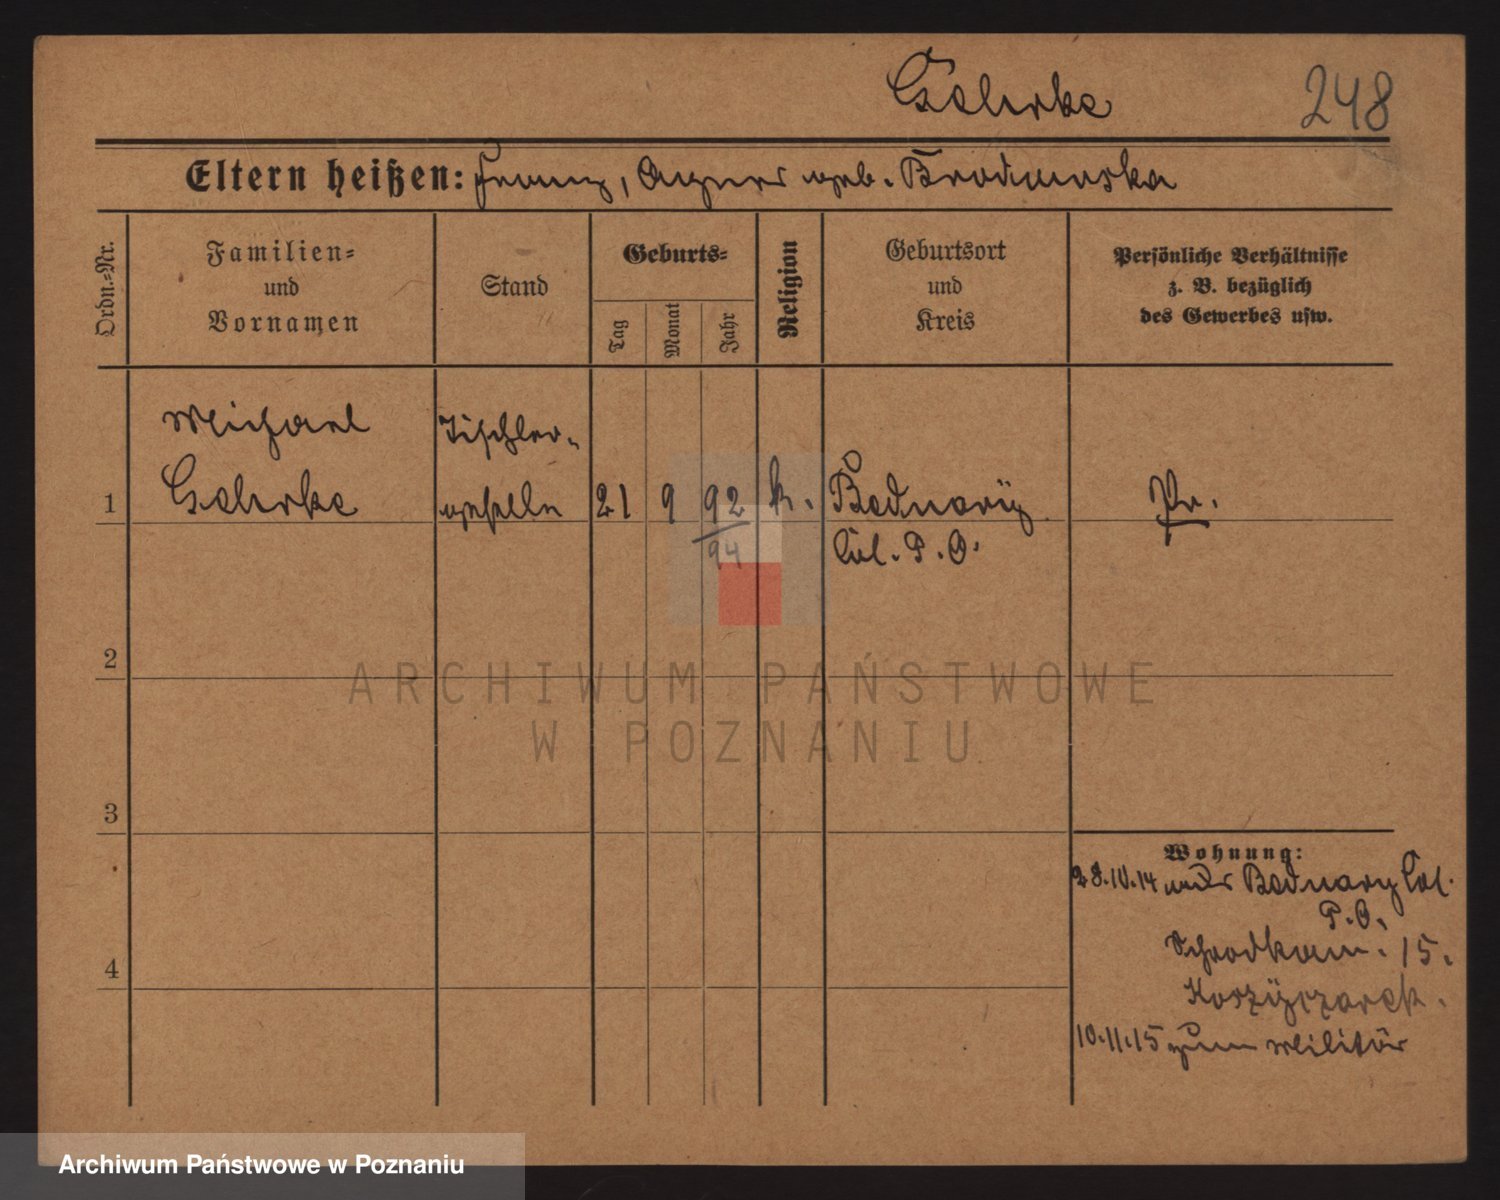 Gehrke
248
Eltern heißen: Franz, Agnes geb. Brodowska
Ordn.-Nr.
Familien-
und
Vornamen
Stand
Geburts-
Tag
Monat
Jahr
Religion
Geburtsort
und
Kreis
Persönliche Verhältnisse
z. B. bezüglich
des Gewerbes usw.
Michael
Gehrke
Tischler-
geselle
1
21
9
92
94
k.
Bednary
Col. P. O.
Pr.
2
3
4
Wohnung:
28.10.14 Bednary Col.
P. O.
Schrodkam. 15.
10.11.15 zum Militär
ARCHIWUM PAŃSTWOWE
W POZNANIU
Archiwum Państwowe w Poznaniu